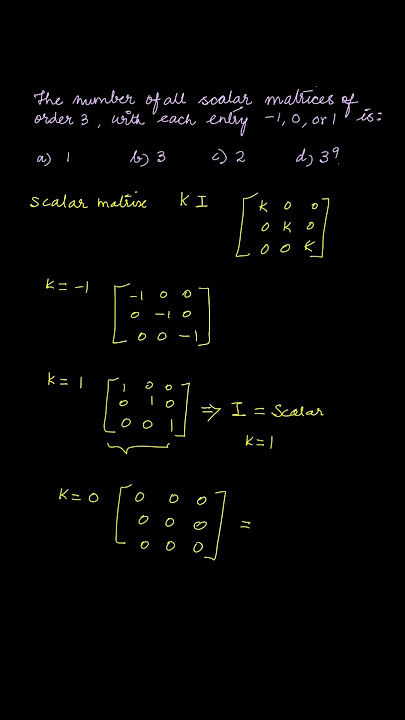 The number of all scalar matrices of
order 3, with each entry -1, 0, or 1 is:
a) 1 b) 3 c) 2 d) 3⁹.
Scalar matrix K I [K 0 0
0 K 0
0 0 K]
K = -1 [-1 0 0
0 -1 0
0 0 -1]
K = 1 [1 0 0
0 1 0
0 0 1] ⇒ I = Scalar
K = 1
K = 0 [0 0 0
0 0 0
0 0 0] =